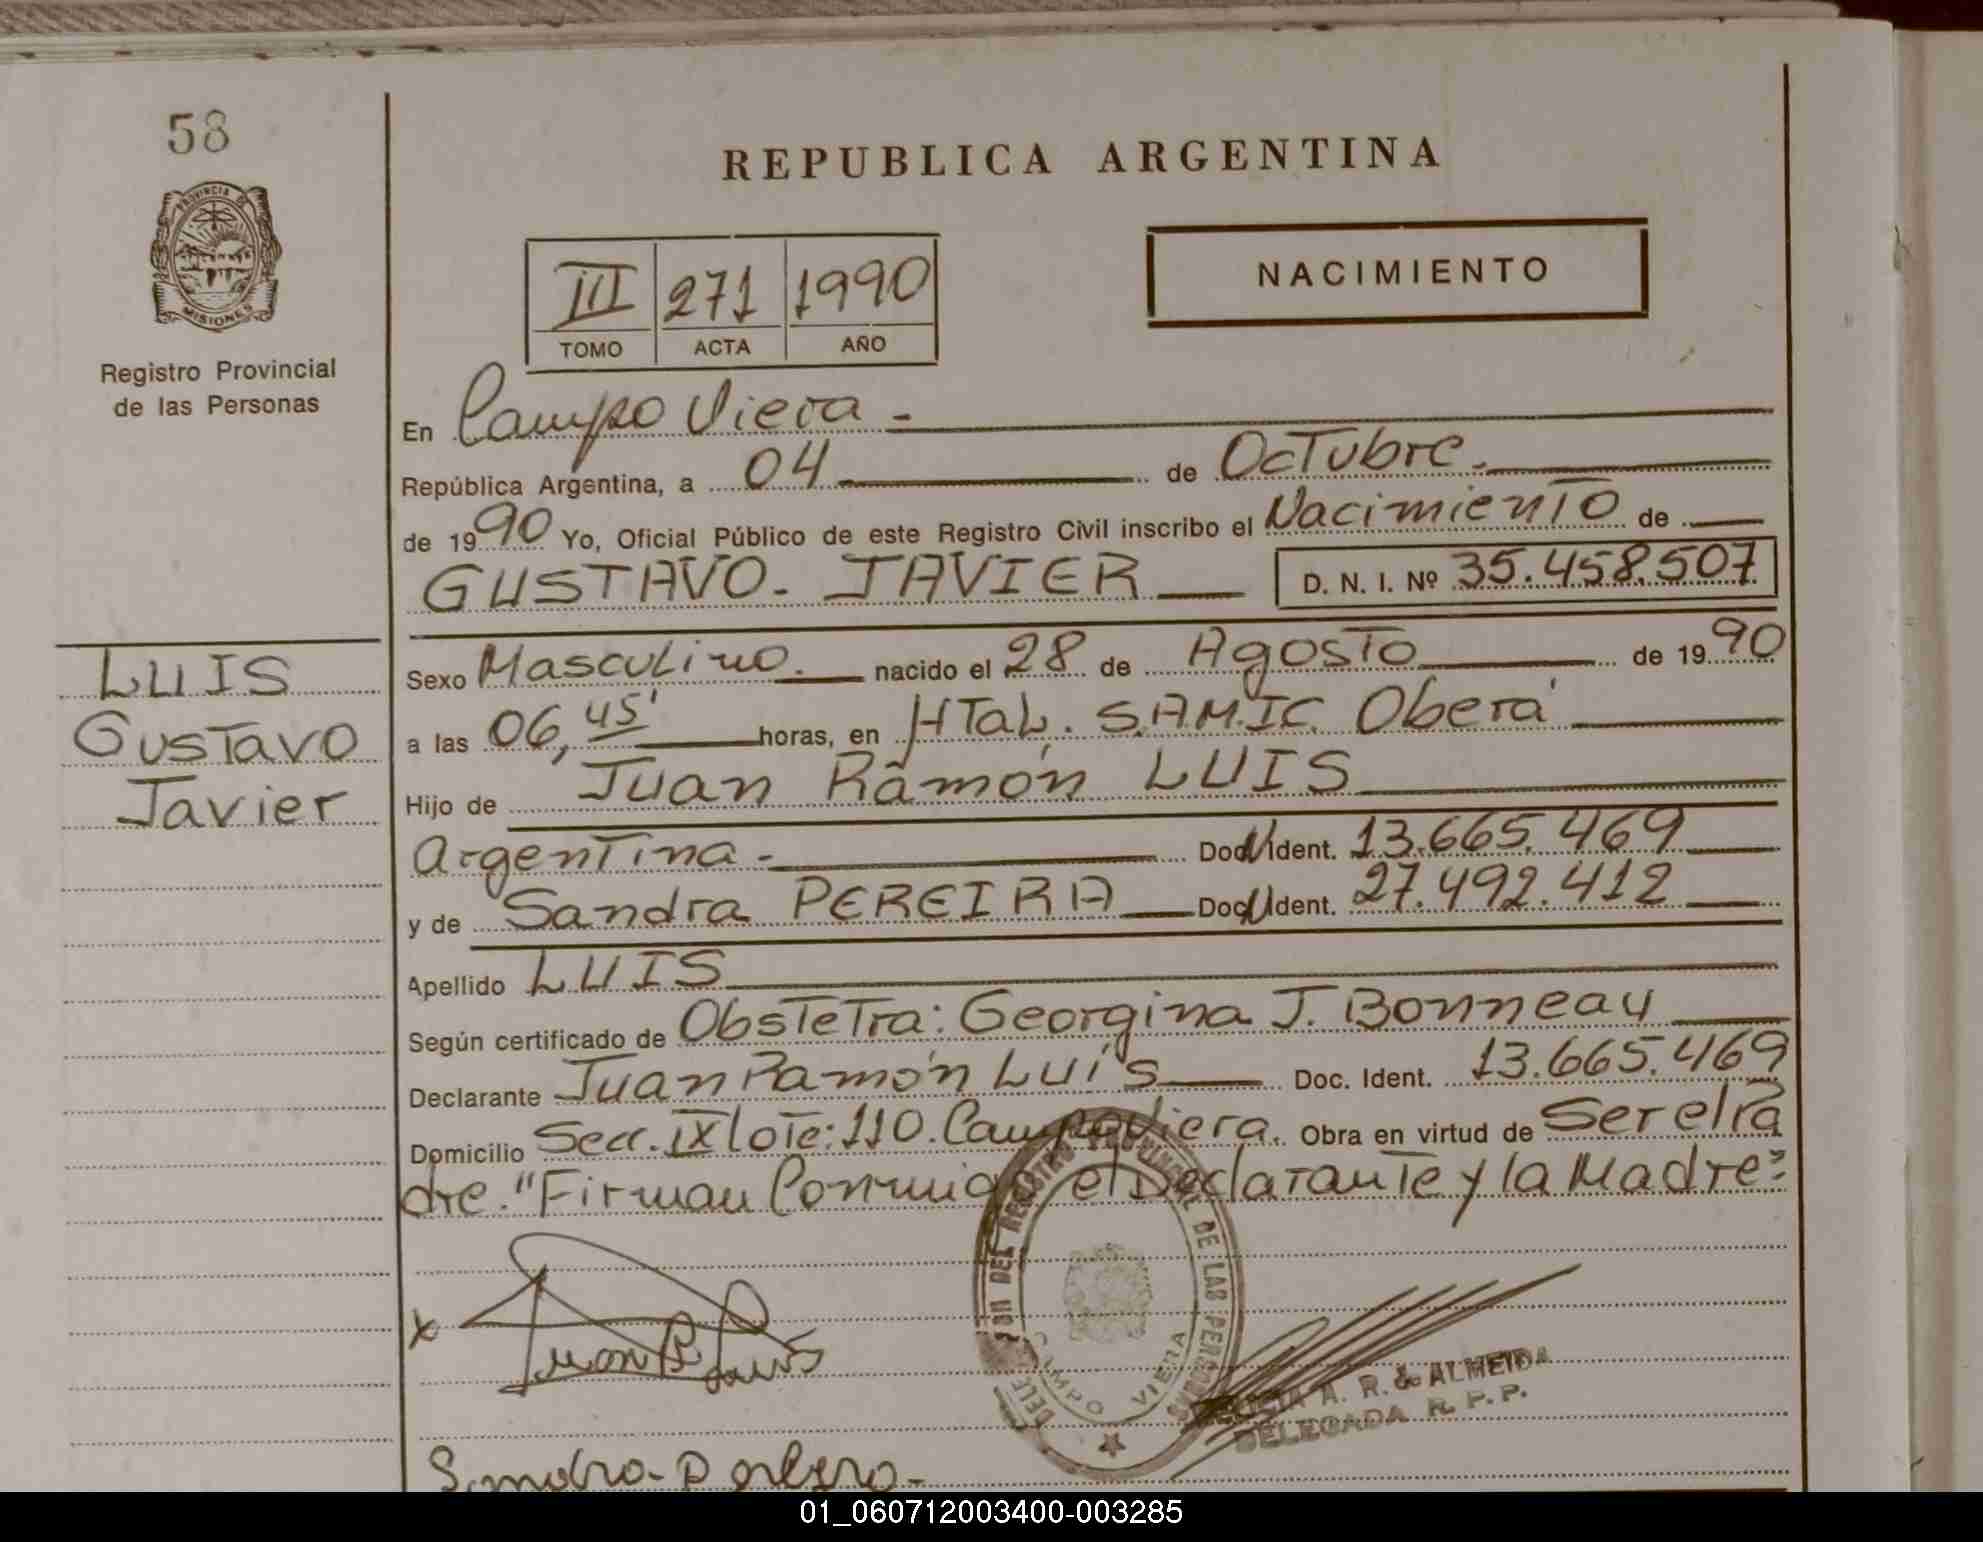 58
PROVINCIA DE
MISIONES
Registro Provincial
de las Personas
REPUBLICA ARGENTINA
NACIMIENTO
III 271 1990
TOMO ACTA AÑO
En Campo Viera -
República Argentina, a 04 de Octubre.
de 1990 Yo, Oficial Público de este Registro Civil inscribo el Nacimiento de
GUSTAVO. JAVIER D. N. I. Nº 35.458.507
LUIS
Gustavo
Javier
Sexo Masculino. nacido el 28 de Agosto de 1990
a las 06,45' horas, en HTaL. S.A.M.IC. Oberá
Hijo de Juan Ramón LUIS
Argentina - Doc N Ident. 13.665.469
y de Sandra PEREIRA Doc N Ident. 27.492.412
Apellido LUIS
Según certificado de Obstetra: Georgina J. Bonneau
Declarante Juan Ramón Luis Doc. Ident. 13.665.469
Domicilio Secc. IX lote: 110. Campo Viera. Obra en virtud de Ser el Pa
dre. "Firman Conmigo el Declarante y la Madre"
DEL REGISTRO PROVINCIAL DE LAS PERSONAS
CAMPO VIERA
Juan R Luis
A. R. de ALMEIDA
DELEGADA R. P. P.
01_060712003400-003285